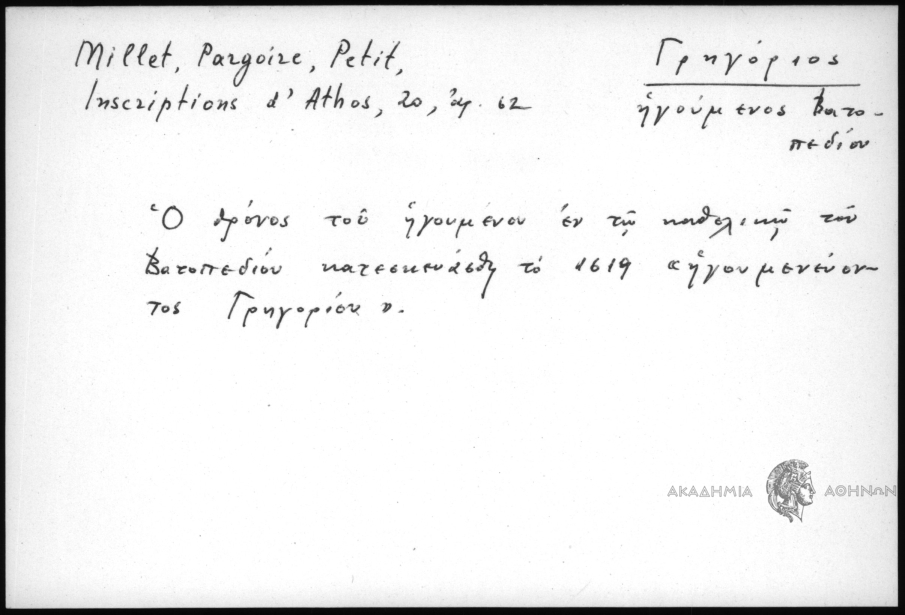 Millet, Pargoire, Petit,
Inscriptions d'Athos, 20, ἀρ. 62
Γρηγόριος
ἡγούμενος Βατο-
πεδίου
Ὁ θρόνος τοῦ ἡγουμένου ἐν τῷ καθολικῷ τοῦ
Βατοπεδίου κατεσκευάσθη τὸ 1619 «ἡγουμενεύον-
τος Γρηγορίου».
ΑΚΑΔΗΜΙΑ ΑΘΗΝΩΝ